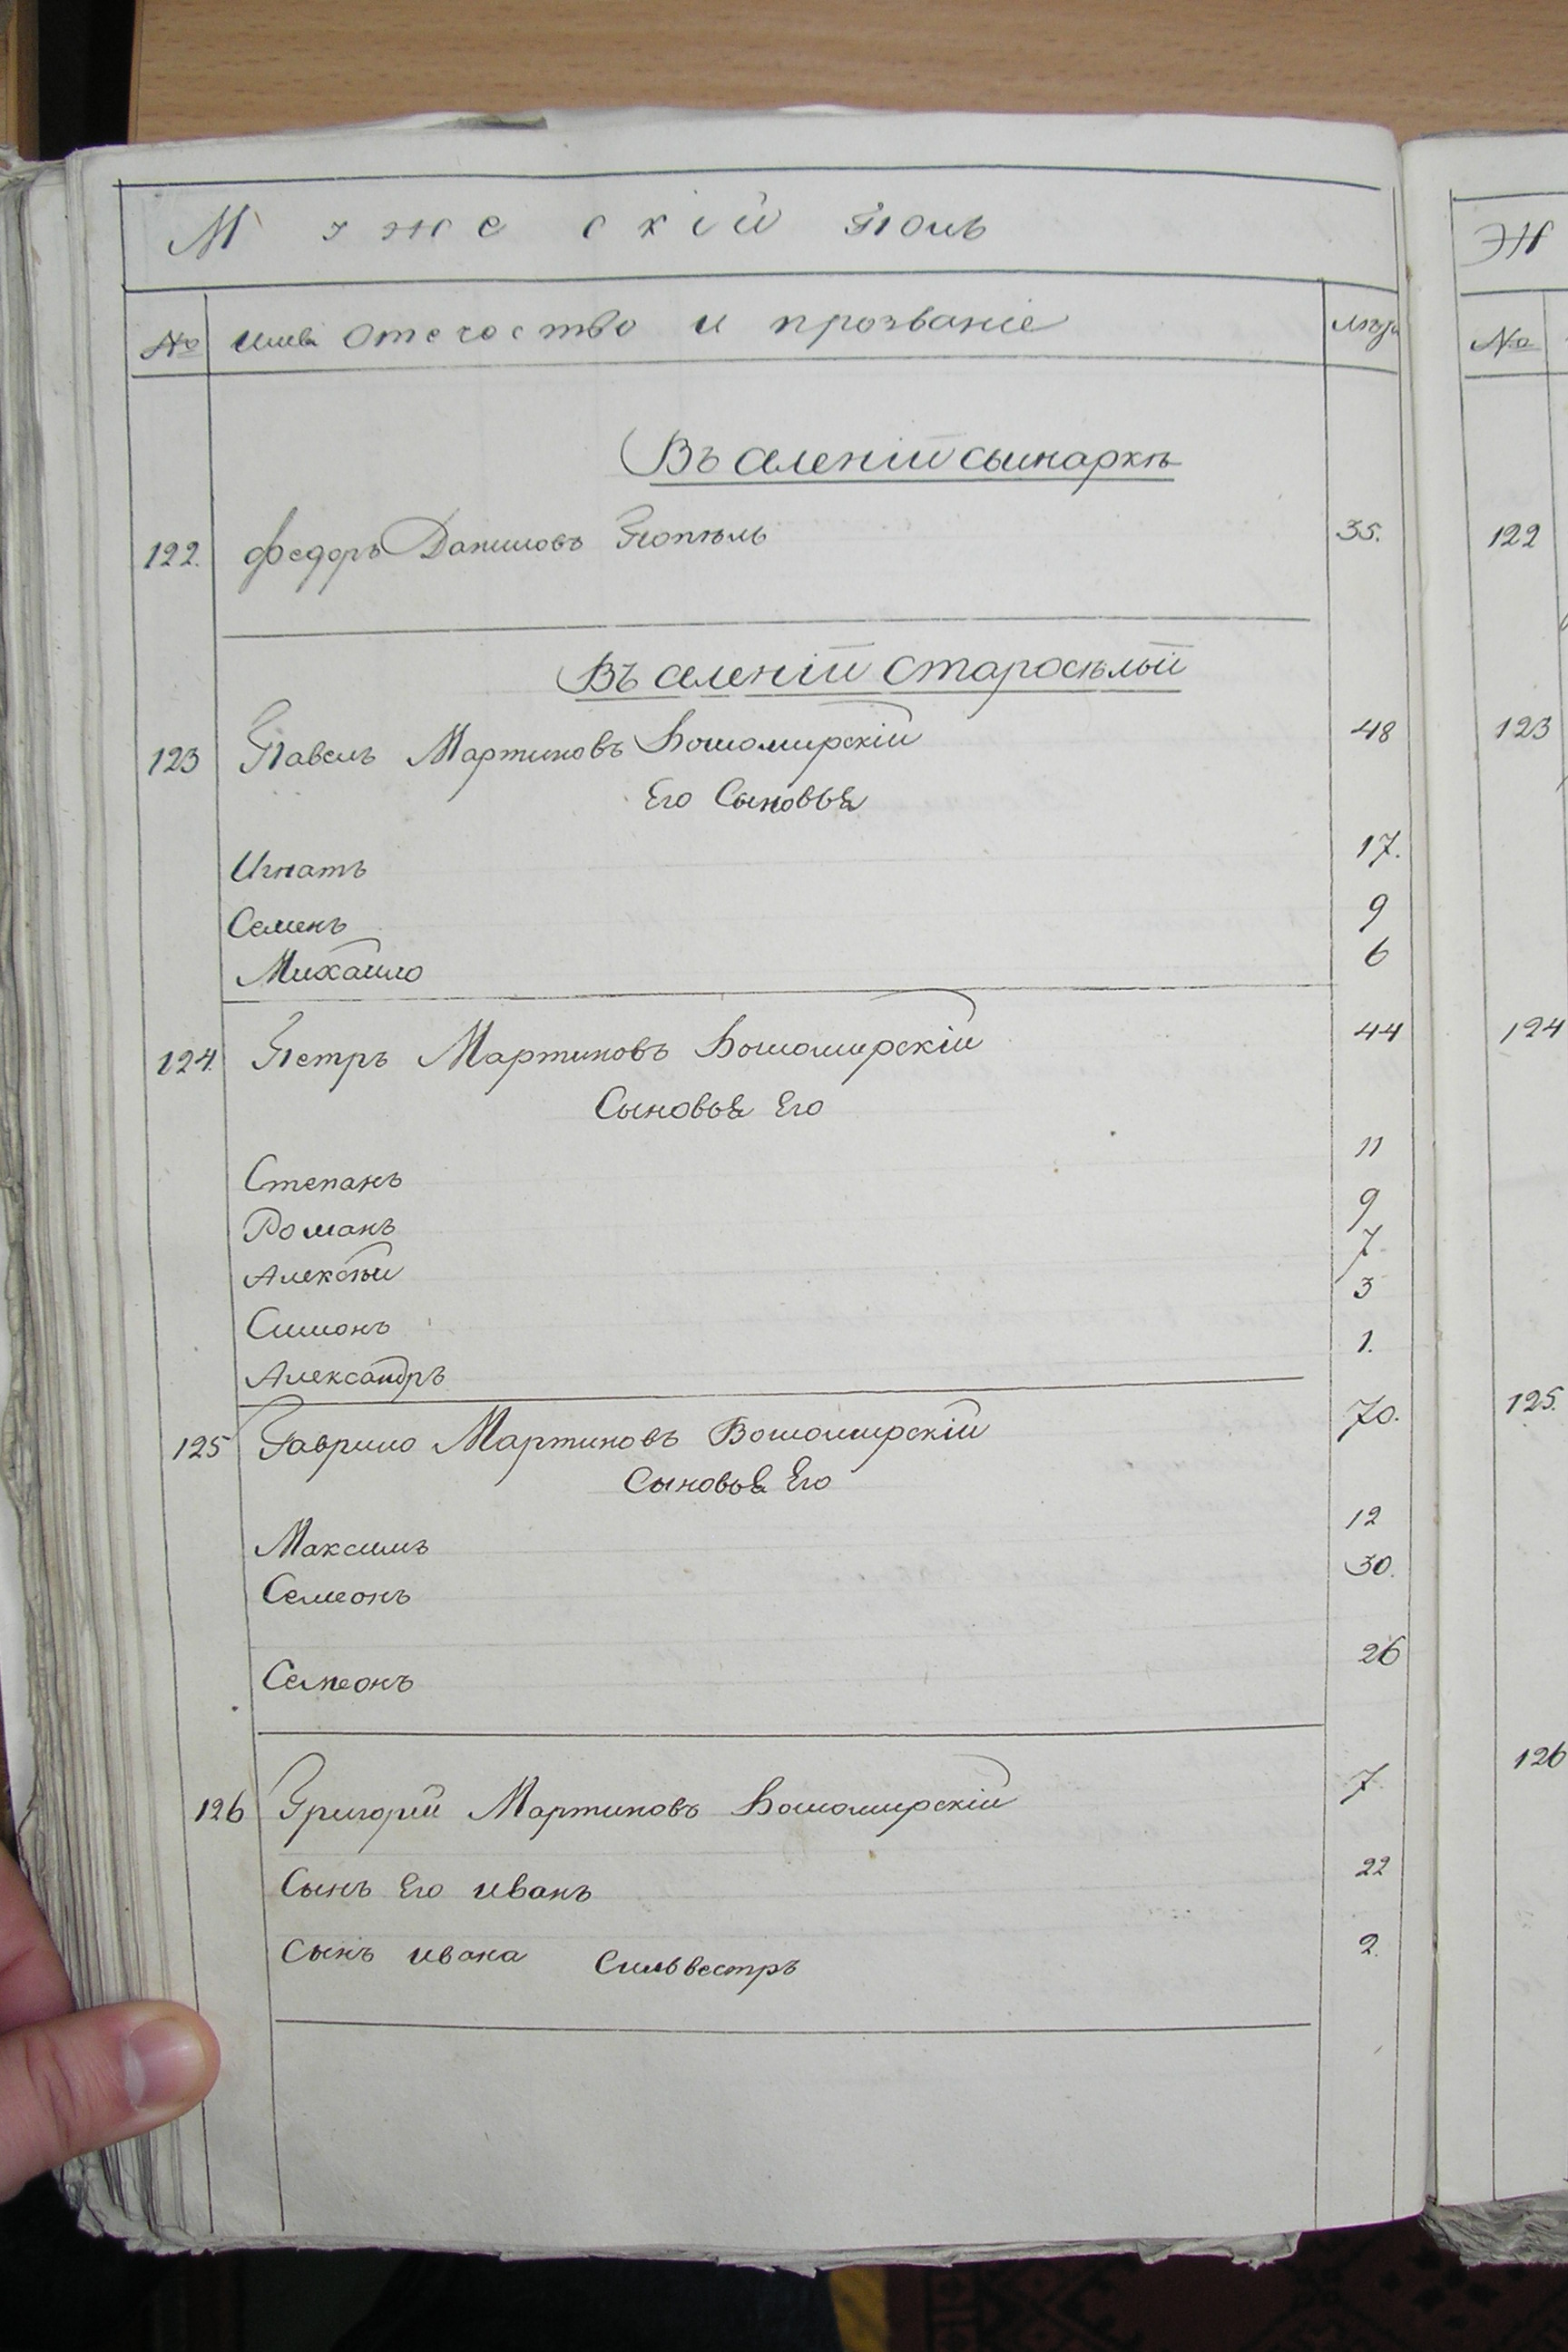 Мужескій полъ
№ имя отечество и прозваніе лѣта
Въ селеніи сымаркѣ
122. Федоръ Даниловъ 35.
Въ селеніи Старосѣлъи
123 Павелъ Мартиновъ Воломирскій 48
Его Сыновья
Игнатъ 17.
Семенъ 9
Михайло 6
124. Петръ Мартиновъ Воломирскій 44
Сыновья Его
Степанъ 11
Романъ 9
Алексѣй 7
Симонъ 3
Александръ 1.
125 Гаврило Мартиновъ Воломирскій 70.
Сыновья Его
Максимъ 12
Семеонъ 30.
Семеонъ 26
126 Григорій Мартиновъ Воломирскій 7
Сынъ Его иванъ 22
Сынъ ивана Сильвестръ 2.
Ж
№
122
123
124
125.
126